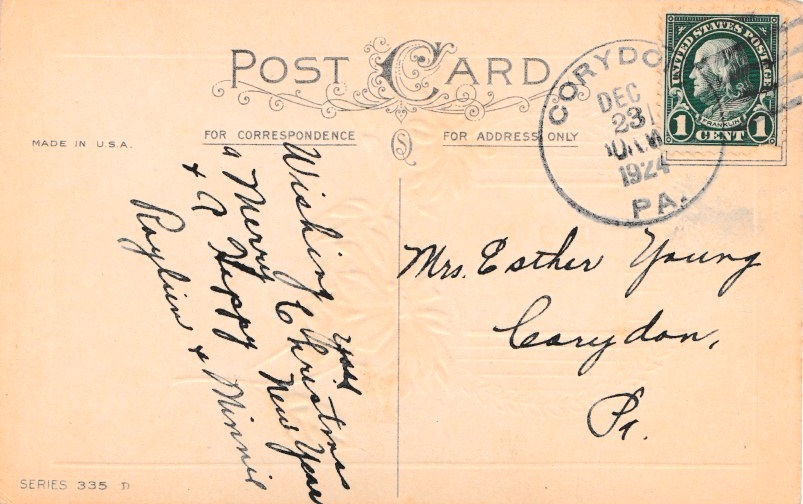 POST CARD
FOR CORRESPONDENCE
FOR ADDRESS ONLY
MADE IN U.S.A.
CORYDON
DEC
23
10 A M
1924
PA.
UNITED STATES POSTAGE
FRANKLIN
1 CENT 1
Wishing you
a Merry Christmas
+ A Happy New Year
+ Minnie
Mrs. Esther Young
Corydon,
Pa.
SERIES 335 D